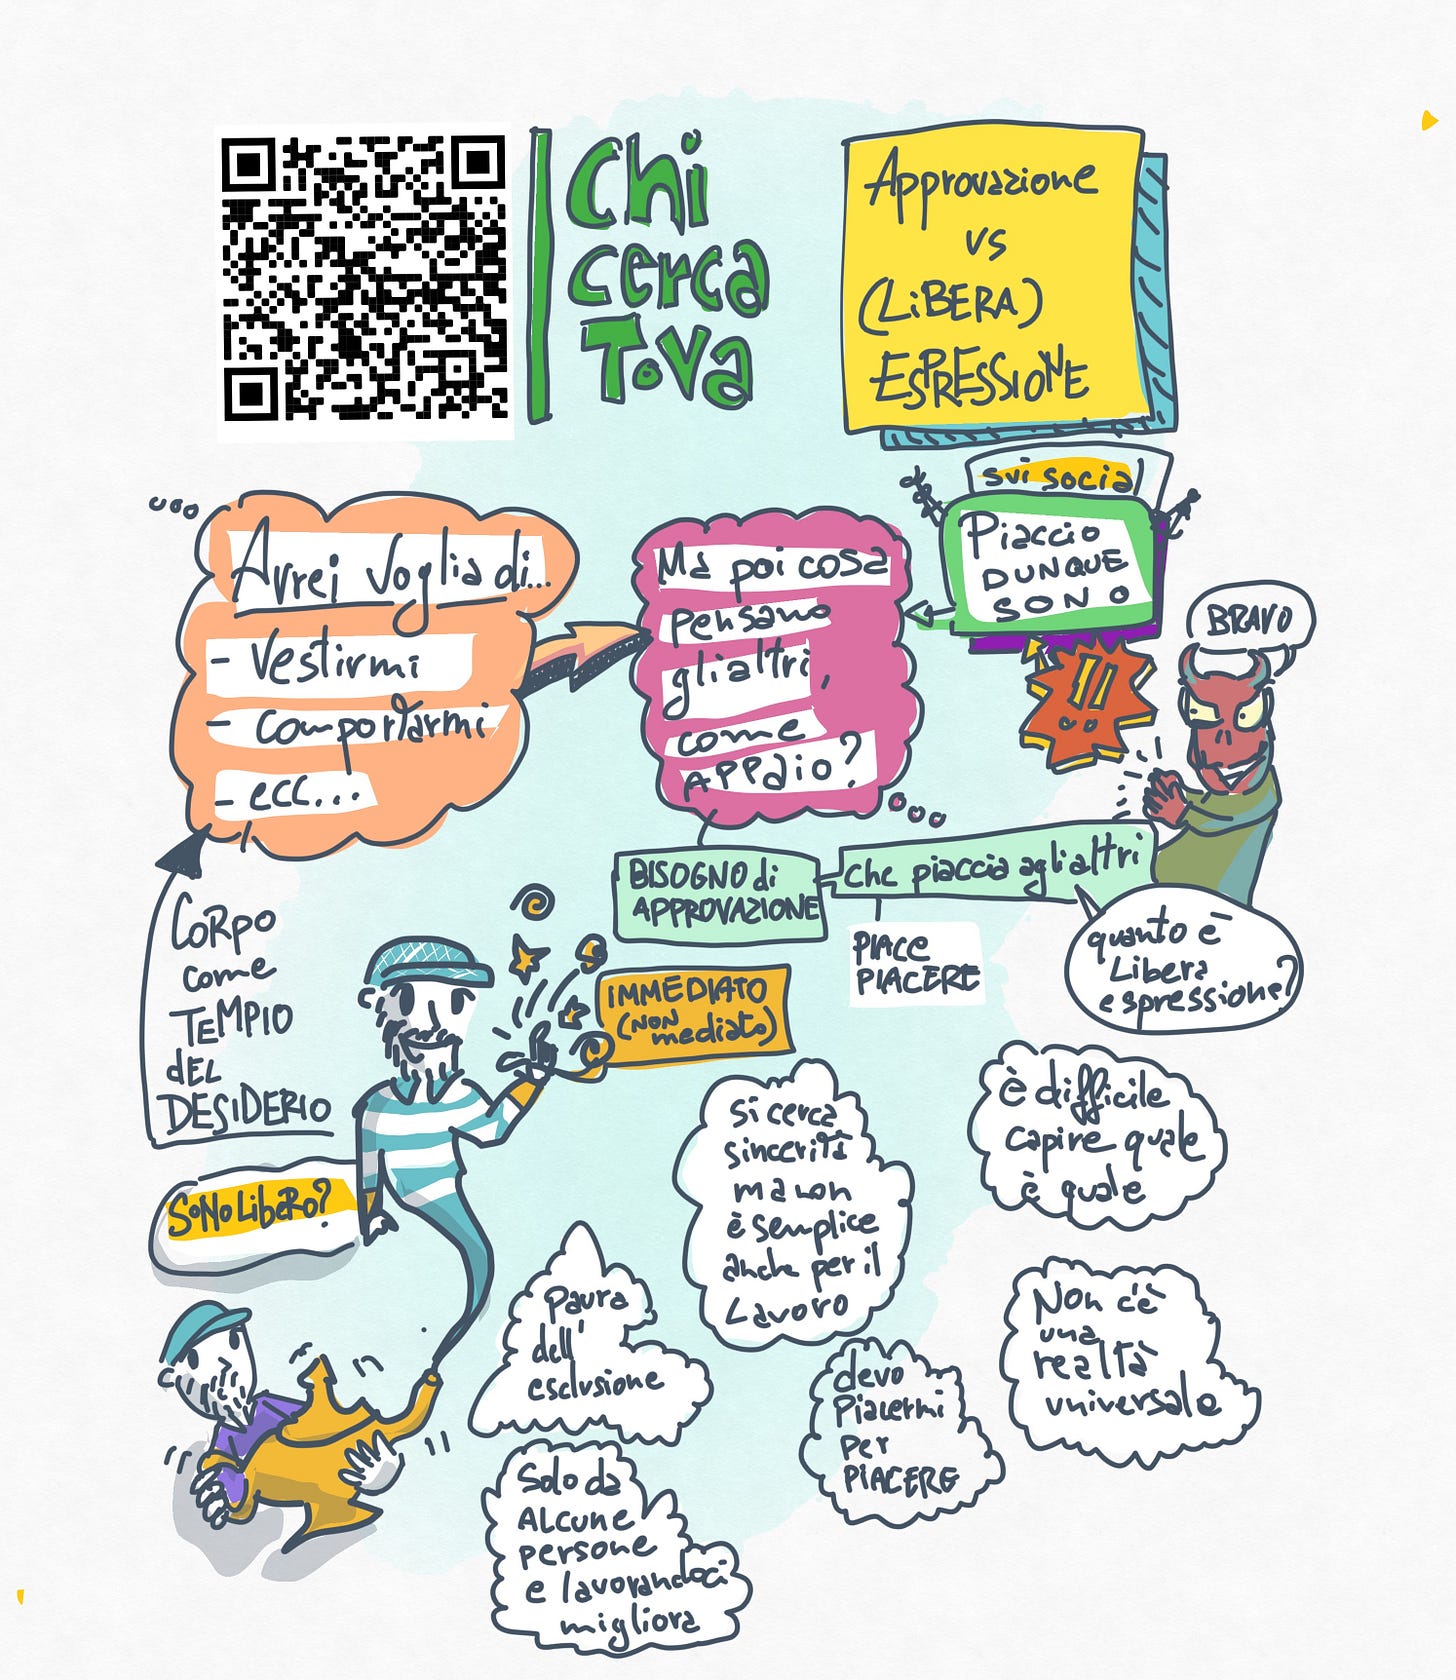 Chi
cerca
Tova
Approvazione
vs
(LiBERA)
ESPRESSIONE
sui social
Piaccio
DUNQUE
SONO
!!
BRAVO
Avrei voglia di...
- Vestirmi
- comportarmi
- ecc...
Ma poi cosa
pensano
gli altri,
come
APPaio?
BISOGNO di
APPROVAZIONE
che piaccia agli altri
PIACE
PIACERE
quanto è
Libera
espressione?
CORPO
come
TEMPIO
dEL
DESIDERIO
IMMEDIATO
(NON
mediato)
SONO LibERO?
si cerca
sincerità
ma non
è semplice
anche per il
Lavoro
è difficile
capire quale
è quale
Paura
dell'
esclusione
devo
Piacermi
per
PIACERE
Non c'è
una
realtà
universale
Solo da
ALCUNE
persone
e lavorandoci
migliora